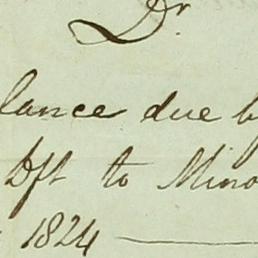 Dr.
lance due b
Dft to Mino
1824